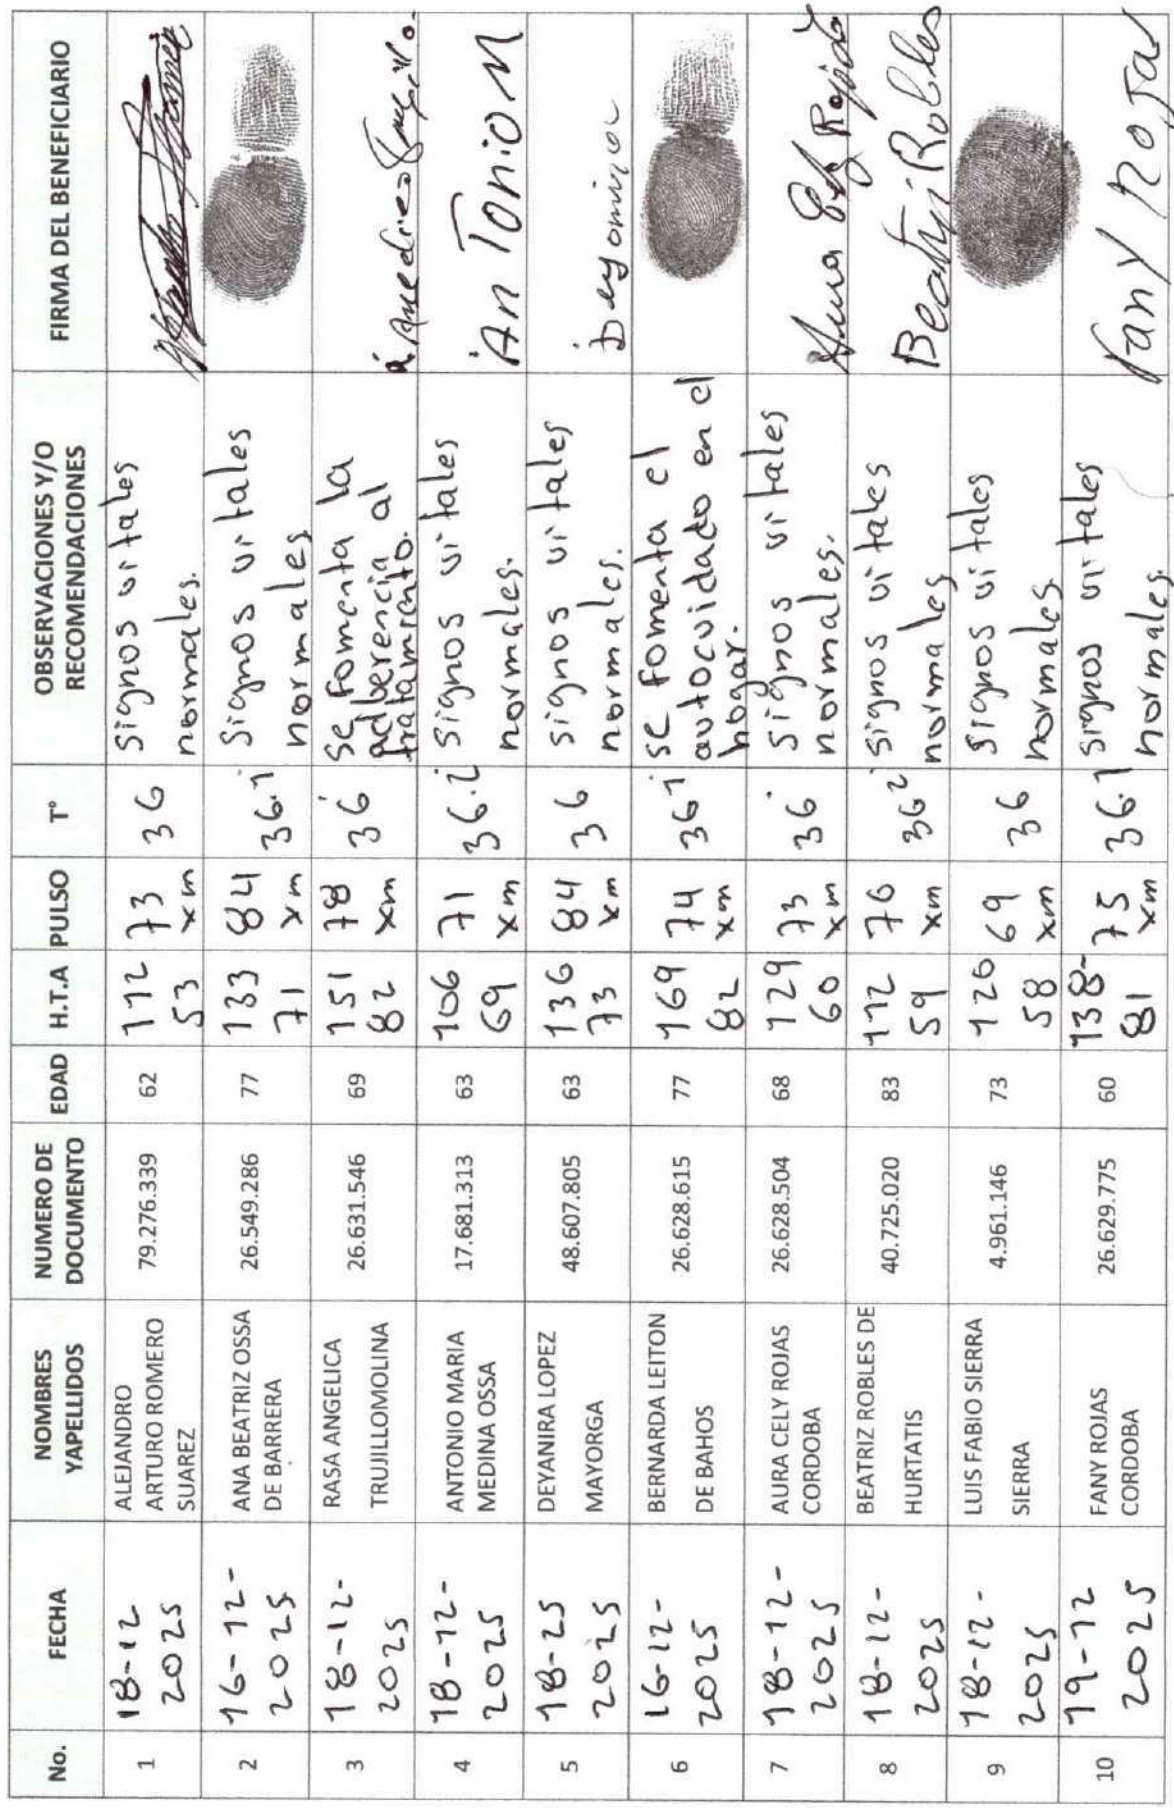 No.
FECHA
NOMBRES
YAPELLIDOS
NUMERO DE
DOCUMENTO
EDAD
H.T.A
PULSO
T°
OBSERVACIONES Y/O
RECOMENDACIONES
FIRMA DEL BENEFICIARIO
1
18-12
2025
ALEJANDRO
ARTURO ROMERO
SUAREZ
79.276.339
62
112
53
73
xm
36
signos vitales
normales.
2
16-12-
2025
ANA BEATRIZ OSSA
DE BARRERA
26.549.286
77
133
71
84
xm
36.1
signos vitales
normales
3
18-12-
2025
RASA ANGELICA
TRUJILLOMOLINA
26.631.546
69
151
82
78
xm
36
se fomenta la
adherencia al
tratamiento.
4
18-12-
2025
ANTONIO MARIA
MEDINA OSSA
17.681.313
63
106
69
71
xm
36.2
signos vitales
normales.
An Tonio M
5
18-25
2025
DEYANIRA LOPEZ
MAYORGA
48.607.805
63
136
73
84
xm
36
signos vitales
normales.
6
16-12-
2025
BERNARDA LEITON
DE BAHOS
26.628.615
77
169
82
74
xm
36.1
se fomenta el
autocuidado en el
hogar.
7
18-12-
2025
AURA CELY ROJAS
CORDOBA
26.628.504
68
129
60
73
xm
36
signos vitales
normales.
Aura
8
18-12-
2025
BEATRIZ ROBLES DE
HURTATIS
40.725.020
83
112
59
76
xm
36.2
signos vitales
normales
Beatri Robles
9
18-12-
2025
LUIS FABIO SIERRA
SIERRA
4.961.146
73
126
58
69
xm
36
signos vitales
normales
10
19-12
2025
FANY ROJAS
CORDOBA
26.629.775
60
138-
81
75
xm
36.1
signos vitales
normales.
Fany Rojas